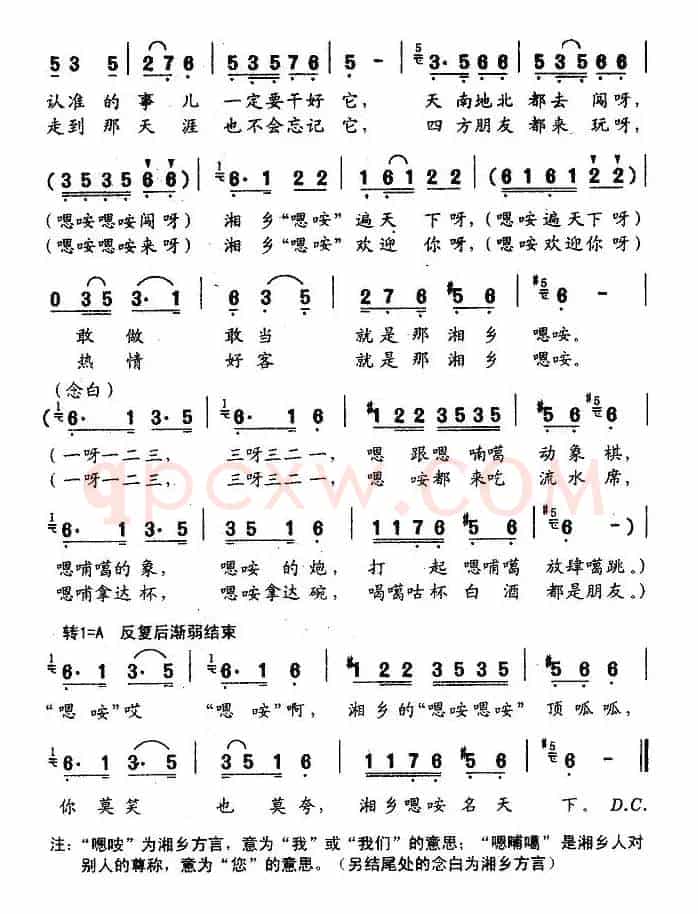 5 3 5 | 2 7 6 | 5 3 5 7 6 | 5 - | 5 3· 5 6 6 | 5 3 5 6 6 |
认准的事儿 一定要干好它, 天南地北都去闯呀,
走到那天涯 也不会忘记它, 四方朋友都来玩呀,
(3 5 3 5 6 6) | 1 6· 1 2 2 | 1 6 1 2 2 | (6 1 6 1 2 2) |
(嗯咹嗯咹闯呀) 湘乡“嗯咹”遍天下呀,(嗯咹遍天下呀)
(嗯咹嗯咹来呀) 湘乡“嗯咹”欢迎你呀,(嗯咹欢迎你呀)
0 3 5 3· 1 | 6 3 5 | 2 7 6 #5 6 | #5 6 - |
敢做 敢当 就是那湘乡 嗯咹。
热情 好客 就是那湘乡 嗯咹。
(念白)
(1 6· 1 3· 5 | 1 6· 1 6 | #1 2 2 3 5 3 5 | #5 6 #5 6 |
(一呀一二三, 三呀三二一, 嗯跟嗯喃噶 动象棋,
(一呀一二三, 三呀三二一, 嗯咹都来吃 流水席,
qpcxw.com
1 6· 1 3· 5 | 3 5 1 6 | 1 1 7 6 #5 6 | #5 6 - ) |
嗯哺噶的象, 嗯咹的炮, 打起嗯哺噶 放肆噶跳。)
嗯哺拿达杯, 嗯咹拿达碗, 喝噶咕杯白酒 都是朋友。)
转1=A 反复后渐弱结束
1 6· 1 3· 5 | 1 6· 1 6 | #1 2 2 3 5 3 5 | #5 6 6 |
“嗯咹”哎 “嗯咹”啊, 湘乡的“嗯咹嗯咹”顶呱呱,
1 6· 1 3· 5 | 3 5 1 6 | 1 1 7 6 #5 6 | #5 6 - ‖
你莫笑 也莫夸, 湘乡嗯咹名天下。D.C.
注:“嗯咹”为湘乡方言,意为“我”或“我们”的意思;“嗯哺噶”是湘乡人对
别人的尊称,意为“您”的意思。(另结尾处的念白为湘乡方言)